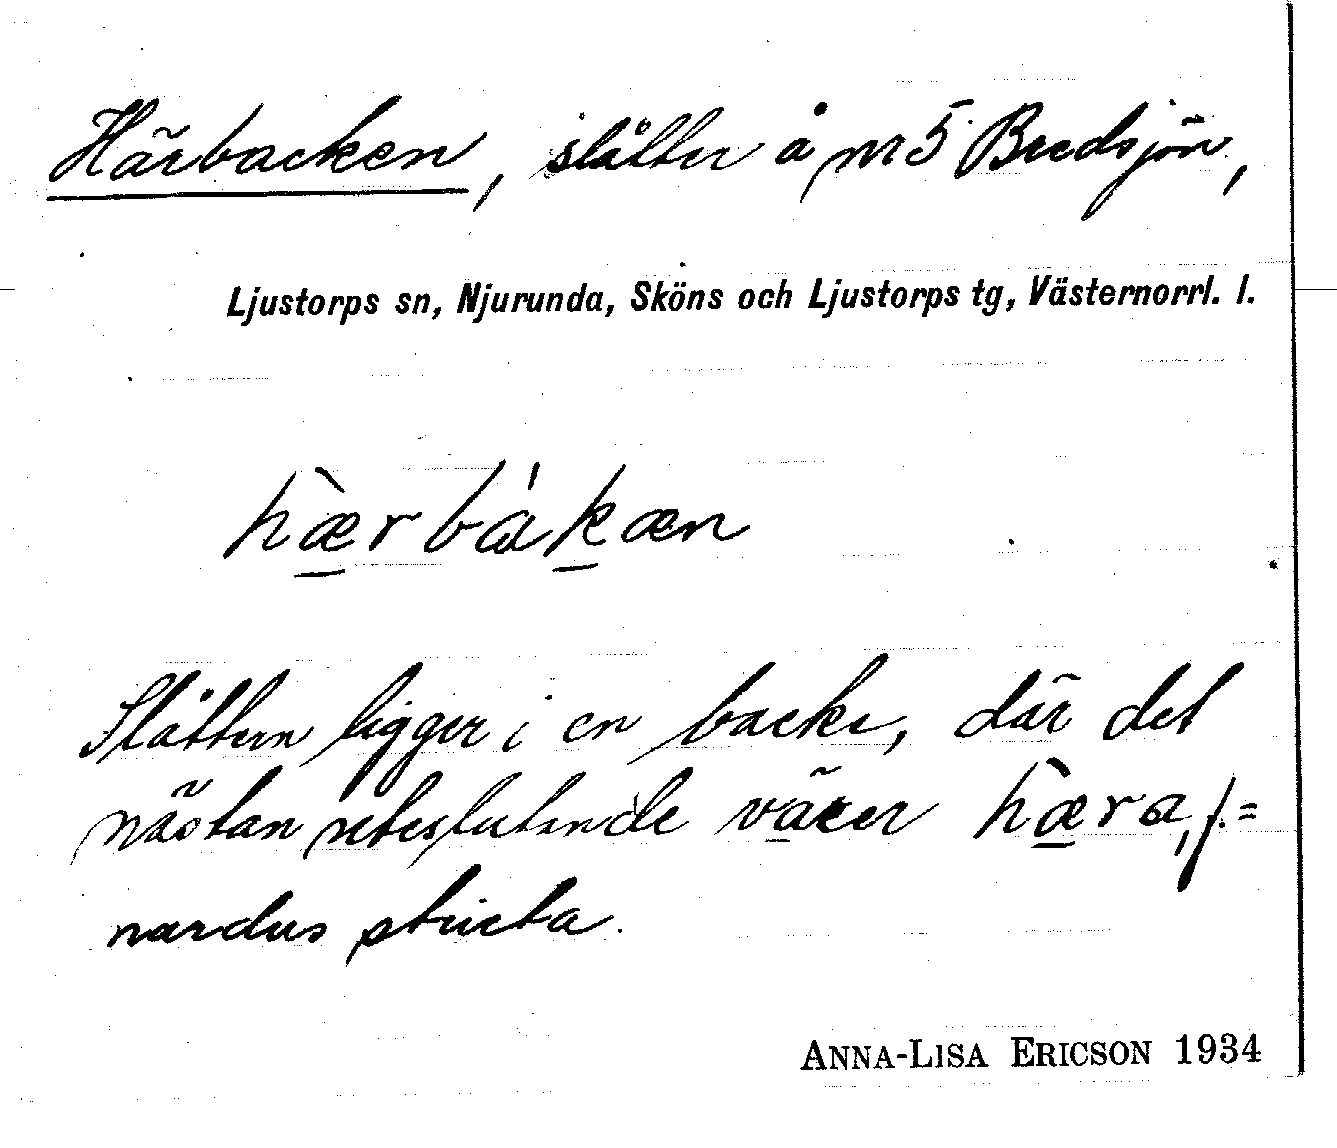 Härbacken, slåtter å nr 5 Bredsjön,
Ljustorps sn, Njurunda, Sköns och Ljustorps tg, Västernorrl. l.
hæ̀rbákæn
Slåttern ligger i en backe, där det
nästan uteslutande växer hæ̀ra, /.=
nardus stricta.
ANNA-LISA ERICSON 1934